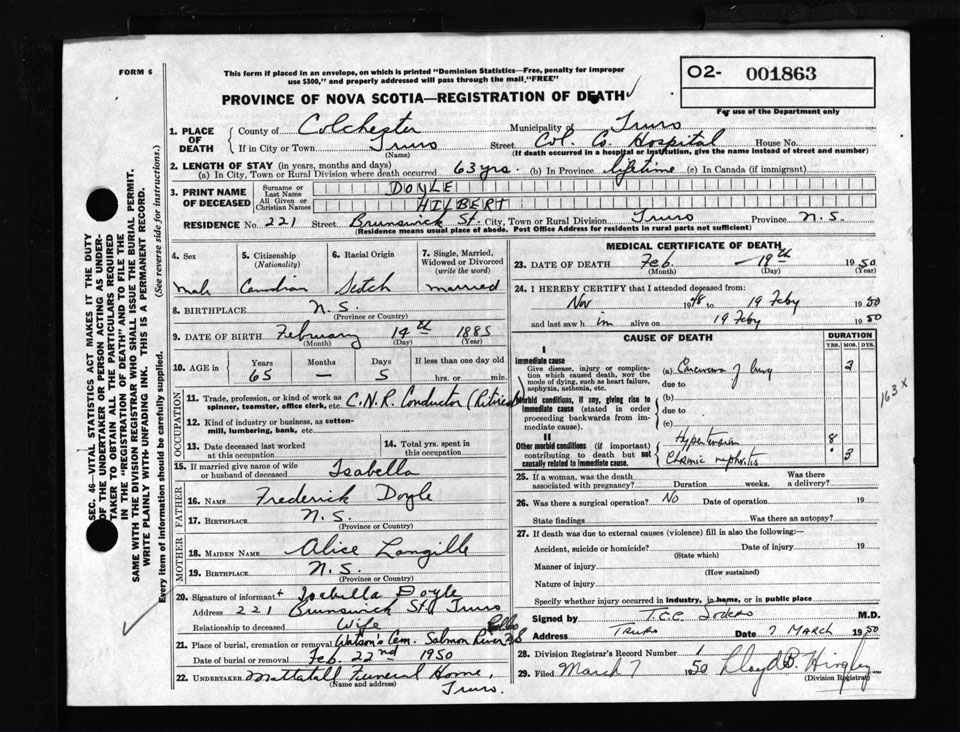 FORM 6
This form if placed in an envelope, on which is printed "Dominion Statistics—Free, penalty for improper
use $300," and properly addressed will pass through the mail "FREE"
O2- 001863
For use of the Department only
PROVINCE OF NOVA SCOTIA—REGISTRATION OF DEATH
1. PLACE OF DEATH
County of Colchester Municipality of Truro
If in City or Town Truro (Name) Street Col. Co. Hospital House No.
(If death occurred in a hospital or institution, give the name instead of street and number)
2. LENGTH OF STAY (in years, months and days)
(a) In City, Town or Rural Division where death occurred 63 yrs. (b) In Province lifetime (c) In Canada (if immigrant)
3. PRINT NAME OF DECEASED
Surname or Last Name DOYLE
All Given or Christian Names HILBERT
RESIDENCE No 221 Street Brunswick St. City, Town or Rural Division Truro Province N.S.
(Residence means usual place of abode. Post Office Address for residents in rural parts not sufficient)
4. Sex
male
5. Citizenship (Nationality)
Canadian
6. Racial Origin
Scotch
7. Single, Married, Widowed or Divorced (write the word)
married
8. BIRTHPLACE N.S.
(Province or Country)
9. DATE OF BIRTH February 14th 1885
(Month) (Day) (Year)
10. AGE in
Years 65 Months — Days 5
If less than one day old
hrs. or min.
OCCUPATION
11. Trade, profession, or kind of work as spinner, teamster, office clerk, etc. C.N.R. Conductor (Retired)
12. Kind of industry or business, as cotton-mill, lumbering, bank, etc.
13. Date deceased last worked at this occupation
14. Total yrs. spent in this occupation
15. If married give name of wife or husband of deceased Isabella
FATHER
16. NAME Frederick Doyle
17. BIRTHPLACE N.S.
(Province or Country)
MOTHER
18. MAIDEN NAME Alice Langille
19. BIRTHPLACE N.S.
(Province or Country)
20. Signature of informant + Isabella Doyle
Address 221 Brunswick St. Truro
Relationship to deceased Wife
21. Place of burial, cremation or removal Watson's Cem. Salmon River
Date of burial or removal Feb. 22nd 1950
22. UNDERTAKER Mattatall Funeral Home,
(Name and address) Truro.
MEDICAL CERTIFICATE OF DEATH
23. DATE OF DEATH Feb. 19th 1950
(Month) (Day) (Year)
24. I HEREBY CERTIFY that I attended deceased from:
Nov 1948 to 19 Feby 1950
and last saw him alive on 19 Feby 1950
CAUSE OF DEATH
DURATION
YRS. MOS. DYS.
I
Immediate cause
Give disease, injury or complication which caused death, not the mode of dying, such as heart failure, asphyxia, asthenia, etc.
(a) Carcinoma of lung 2
due to
Morbid conditions, if any, giving rise to immediate cause (stated in order proceeding backwards from immediate cause).
(b)
due to
(c)
II
Other morbid conditions (if important) contributing to death but not causally related to immediate cause.
Hypertension 8
Chronic nephritis 3
163 X
25. If a woman, was the death associated with pregnancy? Duration weeks. Was there a delivery?
26. Was there a surgical operation? No Date of operation 19
State findings Was there an autopsy?
27. If death was due to external causes (violence) fill in also the following:
Accident, suicide or homicide? Date of injury 19
(State which)
Manner of injury
(How sustained)
Nature of injury
Specify whether injury occurred in industry, in home, or in public place
Signed by M.D.
Address Truro Date 7 March 1950
28. Division Registrar's Record Number 1
29. Filed March 7 1950 Lloyd B. Hingley
(Division Registrar)
SEC. 46—VITAL STATISTICS ACT MAKES IT THE DUTY
OF THE UNDERTAKER OR PERSON ACTING AS UNDER-
TAKER TO OBTAIN ALL THE PARTICULARS REQUIRED
IN THE "REGISTRATION OF DEATH" AND TO FILE THE
SAME WITH THE DIVISION REGISTRAR WHO SHALL ISSUE THE BURIAL PERMIT.
WRITE PLAINLY WITH UNFADING INK. THIS IS A PERMANENT RECORD.
Every item of information should be carefully supplied. (See reverse side for instructions.)